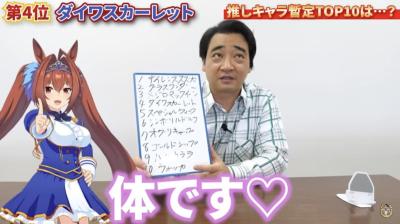 第4位 ダイワスカーレット
推しキャラ暫定TOP10は…?
1 サイレンススズカ
2 グラスワンダー
3 メジロマックイーン
4 ダイワスカーレット
5 スペシャルウィーク
6 シンボリルドルフ
7 オグリキャップ
8 ゴールドシップ
9 ハルウララ
10 ウオッカ
体です♡